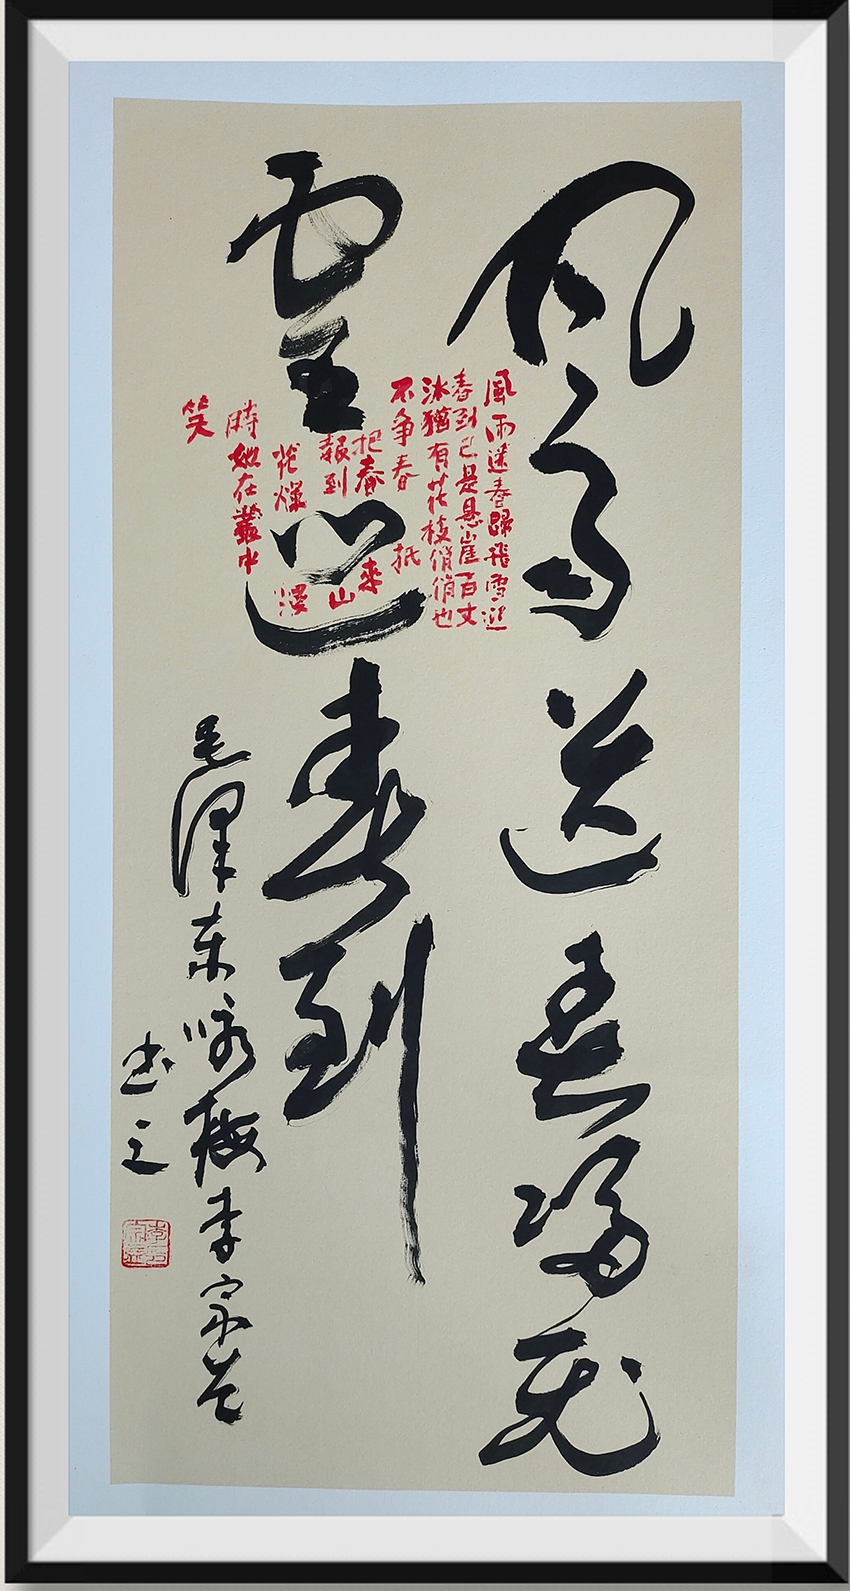 风雨送春归飛
雪迎春到
風雨送春歸飛雪迎
春到已是悬崖百丈
冰猶有花枝俏俏也
不争春祇
把春來
報到山
花爛漫
時她在叢中
笑
毛泽东咏梅李宗
书之